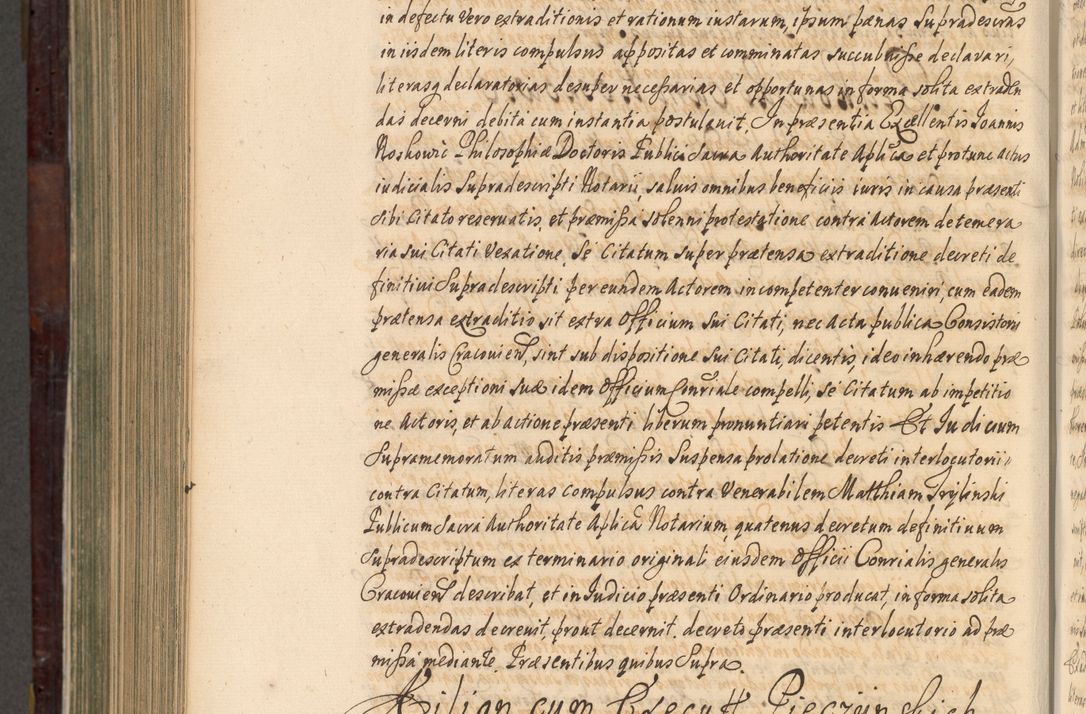 in defectu vero extraditionis et rationum iustarum, ipsum pænas Supradescrās
in iisdem literis compulsus appositas et comminatas succubuisse declarari,
literasq declaratorias desuper necessarias et opportunas in forma solita extraden
das decerni debita cum instantia postulauit. In præsentia Excellentis Ioannis
Roskowic Philosophiæ Doctoris Publici Sacra Authoritate Aplica et protunc actus
iudicialis Supradescripti Notarii, saluis omnibus beneficiis iuris in causa præsenti
sibi Citato reseruatis, et præmissa solenni protestatione contra Actorem de temera
ria sui Citati vexatione, Se Citatum super prætensa extraditione decreti de
finitiui Supradescripti per eundem Actorem incompetenter conueniri, cum eadem
prætensa extraditio sit extra Officium Sui Citati, nec Acta publica Consistorii
generalis Cracouień, sint sub dispositione Sui Citati, dicentis, ideo inhærendo præ
missæ exceptioni suæ idem Officium Conŕiale compelli, Se Citatum ab impetitio
ne Actoris, et ab actione præsenti liberum pronuntiari petentis Et Iudicium
Supramemoratum auditis præmissis Suspensa prolatione decreti interlocutorii
contra Citatum, literas Compulsus contra Venerabilem Matthiam Trylinski
Publicum Sacra Authoritate Aplica Notarium, quatenus decretum definitiuum
Supradescriptum ex terminario originali eiusdem Officii Conrialis generalis
Cracouień describat, et in Iudicio præsenti Ordinario producat, in forma solita
extradendas decreuit, prout decernit, decreto præsenti interlocutorio ad præ
missa mediante. Præsentibus quibus Supra.
Kilian cum Execut Pieczynskich